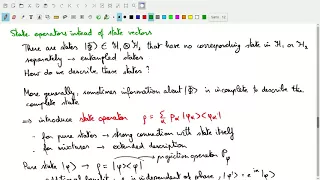 State operators instead of state vectors
There are states |Φ⟩ ∈ ℋ₁⊗ℋ₂ that have no corresponding state in ℋ₁ or ℋ₂
separately → entangled states
How do we describe these states ?
More generally, sometimes information about |Φ⟩ is incomplete to describe the
complete state
⇒ introduce state operator ρ = Σ_α p_α |φ_α⟩⟨φ_α|
- for pure states → strong connection with state itself
- for mixtures → extended description
Pure state |φ⟩ → ρ = |φ⟩⟨φ| → projection operator P_φ
is independent of phase, |φ'⟩ = e^{iη} |φ⟩